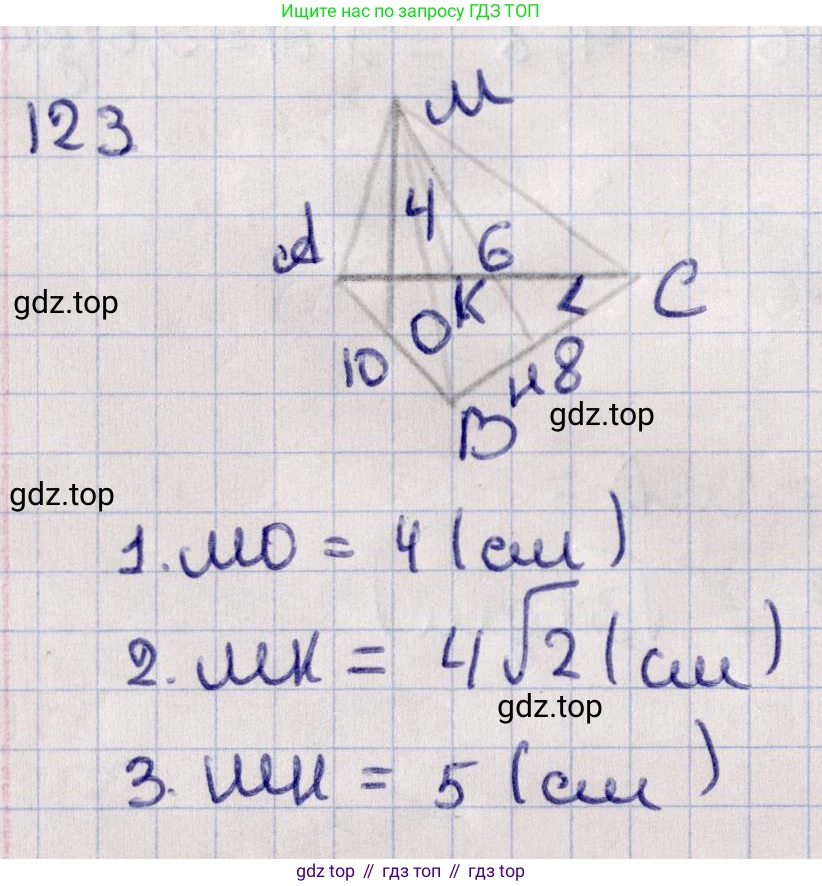 Ищите нас по запросу ГДЗ ТОП
123
M
4
A
6
gdz.top
K
L
C
O
10
H
8
gdz.top
B
gdz.top
1. MO = 4 (см)
2. MK = 4√2 (см)
gdz.top
3. MH = 5 (см)
gdz top // гдз топ // gdz top